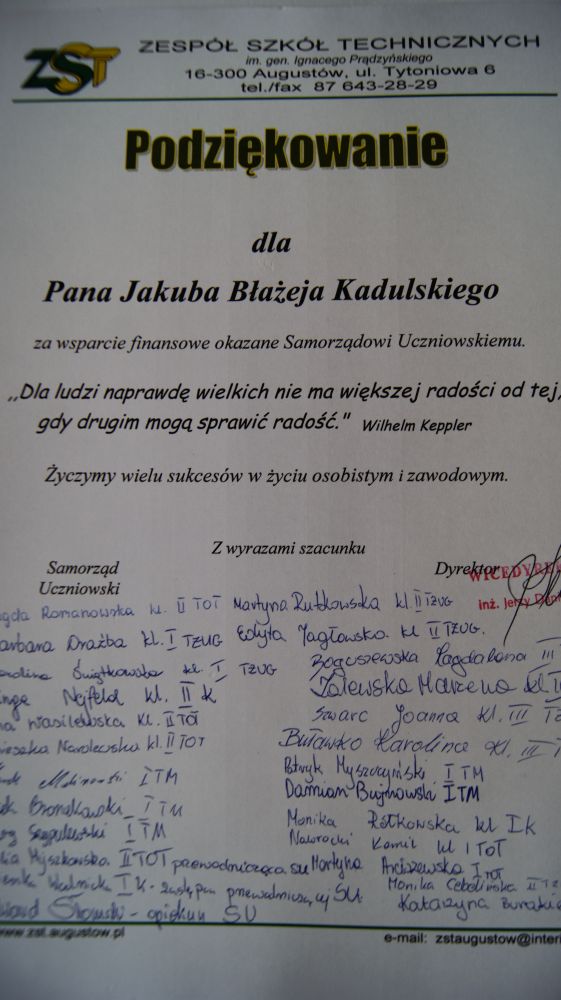 ZST
ZESPÓŁ SZKÓŁ TECHNICZNYCH
im. gen. Ignacego Prądzyńskiego
16-300 Augustów, ul. Tytoniowa 6
tel./fax 87 643-28-29
Podziękowanie
dla
Pana Jakuba Błażeja Kadulskiego
za wsparcie finansowe okazane Samorządowi Uczniowskiemu.
,,Dla ludzi naprawdę wielkich nie ma większej radości od tej,
gdy drugim mogą sprawić radość." Wilhelm Keppler
Życzymy wielu sukcesów w życiu osobistym i zawodowym.
Z wyrazami szacunku
Samorząd
Uczniowski
Dyrektor
inż. Jerzy
Romanowska kl. II TOT
Drażba kl. I TZUG
Świętkowska kl. I TZUG
Nejfeld kl. II K
Wasilewska kl. II TOT
kl. II TOT
I TM
I TM
I TM
Myszkowska II TOT przewodnicząca SU
I K - przewodniczącej SU
- opiekun SU
Martyna Rutkowska kl II TZUG
Edyta Jagłowska kl II TZUG.
Boguszewska Magdalena III
Zalewska Marzena kl
Szwarc Joanna kl. III
Buławko Karolina kl. III
Patryk Myszczyński I TM
Damian Bujnowski I TM
Monika Rótkowska kl I K
Nawrocki Kamil kl I TOT
Martyna Arciszewska I TOT
Monika
Katarzyna
www.zst.augustow.pl
e-mail: zstaugustow@interi